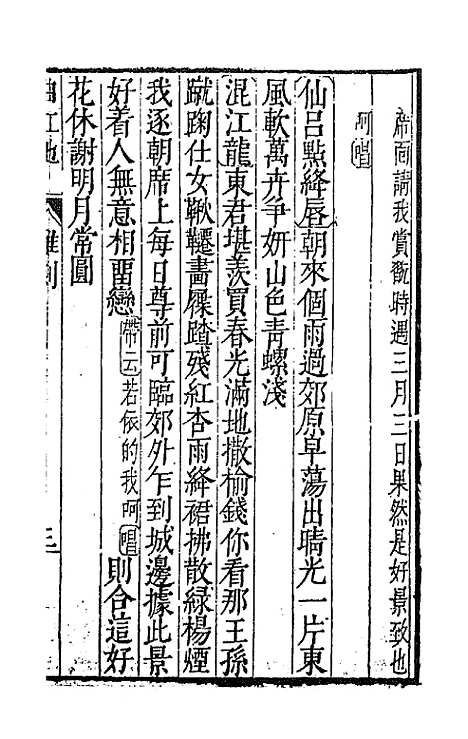 席面請我賞翫時遇三月三日果然是好景致也
呵唱
仙呂點絳唇朝來個雨過郊原早蕩出晴光一片東
風軟萬卉爭妍山色青螺淺
混江龍東君堪羨買春光滿地撒榆錢你看那王孫
蹴踘仕女鞦韆畫屧踏殘紅杏雨絳裙拂散綠楊煙
我逐朝席上每日尊前可臨郊外乍到城邊據此景
好着人無意相留戀帶云若依的我呵唱則合這好
花休謝明月常圓
曲江池 雜劇 三